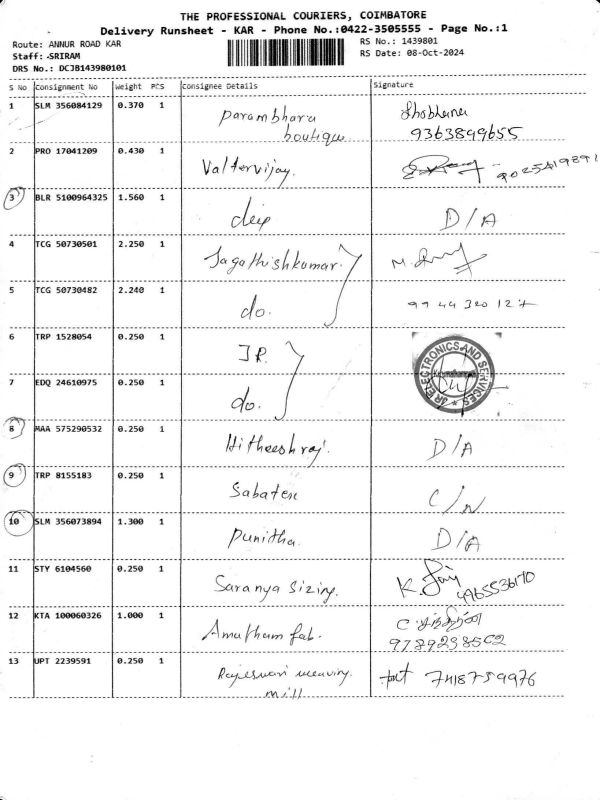 THE PROFESSIONAL COURIERS, COIMBATORE
Delivery Runsheet - KAR - Phone No.:0422-3505555 - Page No.:1
Route: ANNUR ROAD KAR RS No.: 1439801
Staff: -SRIRAM RS Date: 08-Oct-2024
DRS No.: DCJB143980101
S No Consignment No Weight PCS Consignee Details Signature
1 SLM 356084129 0.370 1 Parambhara Shobhana
boutique 9363899655
2 PRO 17041209 0.430 1 Valtervijay.
3 BLR 5100964325 1.560 1 deip D/A
4 TCG 50730501 2.250 1 Jagathishkumar.
5 TCG 50730482 2.240 1 do. 99 44 320 127
6 TRP 1528054 0.250 1 JR.
JR ELECTRONICS AND SERVICES
7 EDQ 24610975 0.250 1 do.
8 MAA 575290532 0.250 1 Hitheeshraj. D/A
9 TRP 8155183 0.250 1 Sabaten C/N
10 SLM 356073894 1.300 1 Punitha. D/A
11 STY 6104560 0.250 1 Saranya Sizing.
12 KTA 100060326 1.000 1 Amutham fab.
9789238502
13 UPT 2239591 0.250 1 Rajeswari weaving 7418759976
mill